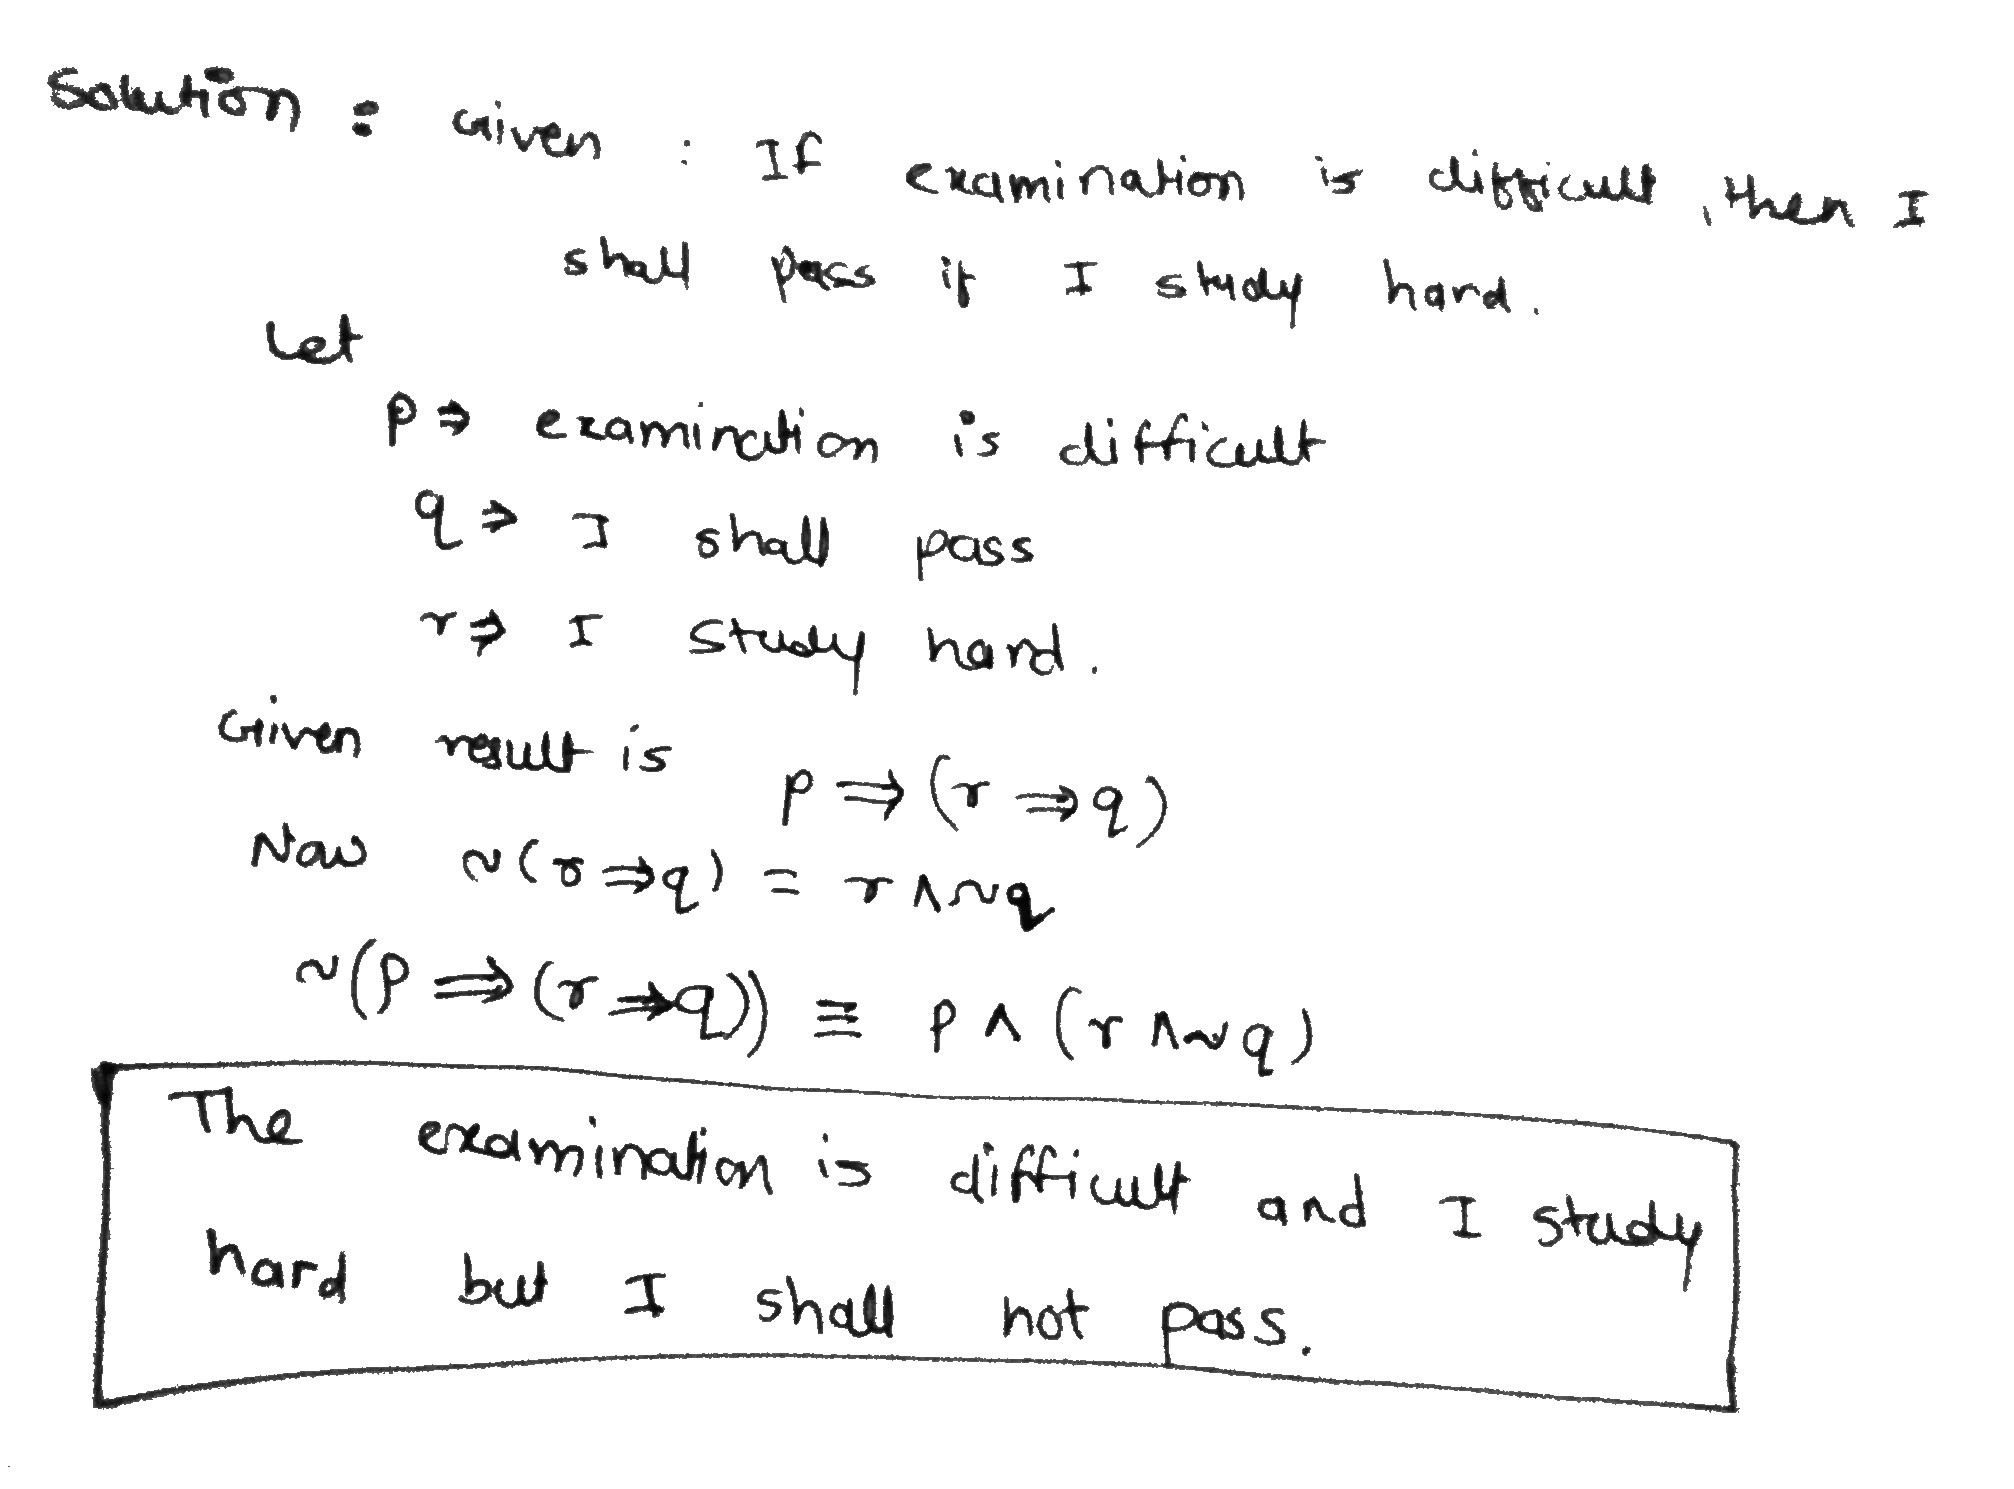 Solution : Given : If examination is difficult, then I
shall pass if I study hard.
Let
p ⇒ examination is difficult
q ⇒ I shall pass
r ⇒ I study hard.
Given result is p ⇒ (r ⇒ q)
Now ~(r ⇒ q) = r ∧ ~q
~(p ⇒ (r ⇒ q)) ≡ p ∧ (r ∧ ~q)
The examination is difficult and I study
hard but I shall not pass.